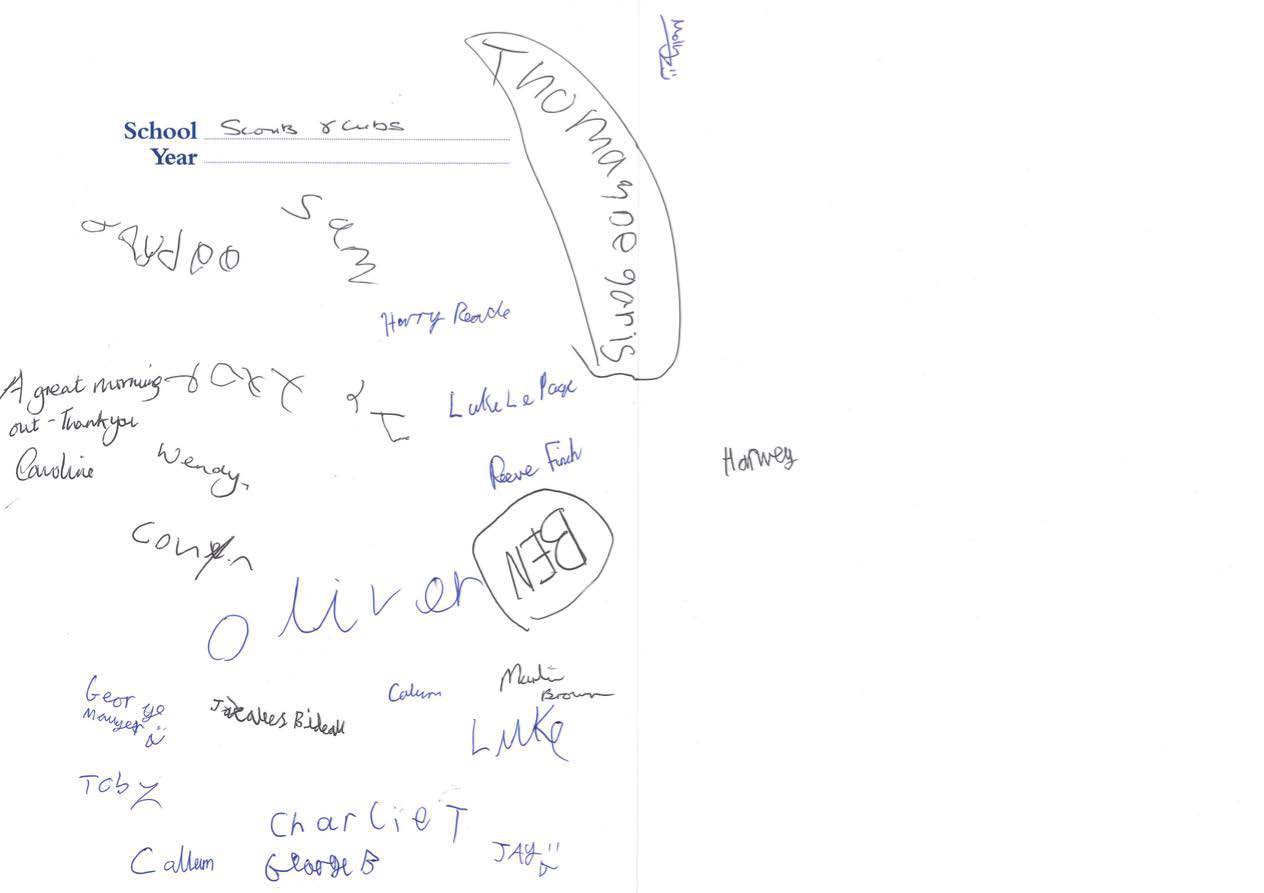 Molly
School Scouts & Cubs
Year
Thomas
Sam
Harry Reade
A great morning
out - Thank you
Luke Le Page
Caroline
Wendy
Reeve Finch
Harvey
BEN
Oliver
George
Mauger
Calum
Martin
Brown
LUKe
Toby
Charlie T
Callum
George B
JAY